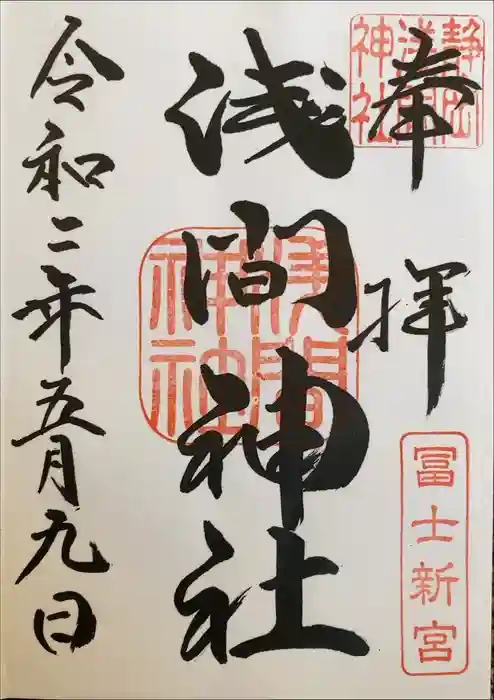 奉拝
静岡浅間神社
冨士新宮
浅間神社
浅間神社
令和二年五月九日